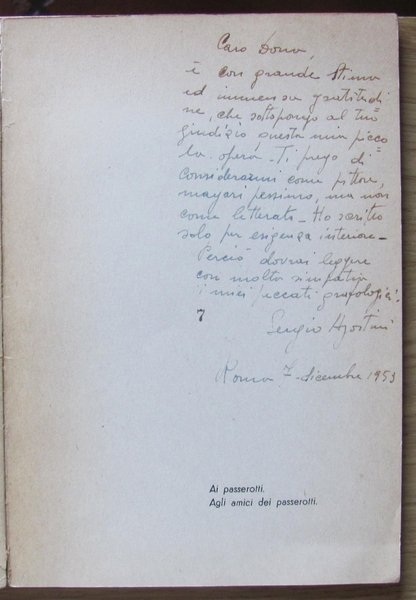 Caro Dorva,
è con grande stima
ed immensa gratitudi=
ne, che sottopongo al tuo
giudizio questa mia picco=
la opera - Ti prego di
considerarmi come pittore,
magari pessimo, ma non
come letterato - Ho scritto
solo per esigenza interiore -
Perciò dovrai leggere
con molta simpatia
i miei peccati grafologici.
7
Sergio Agostini
Roma 7 - dicembre 1953
Ai passerotti.
Agli amici dei passerotti.